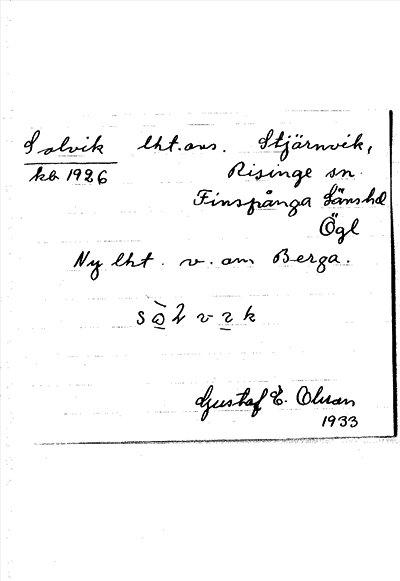 Solvik lht. avs. Stjärnvik,
kb 1926 Risinge sn.
Finspånga Länshd
Ögl
Ny lht. v. om Berga.
Gustaf E. Olsson
1933